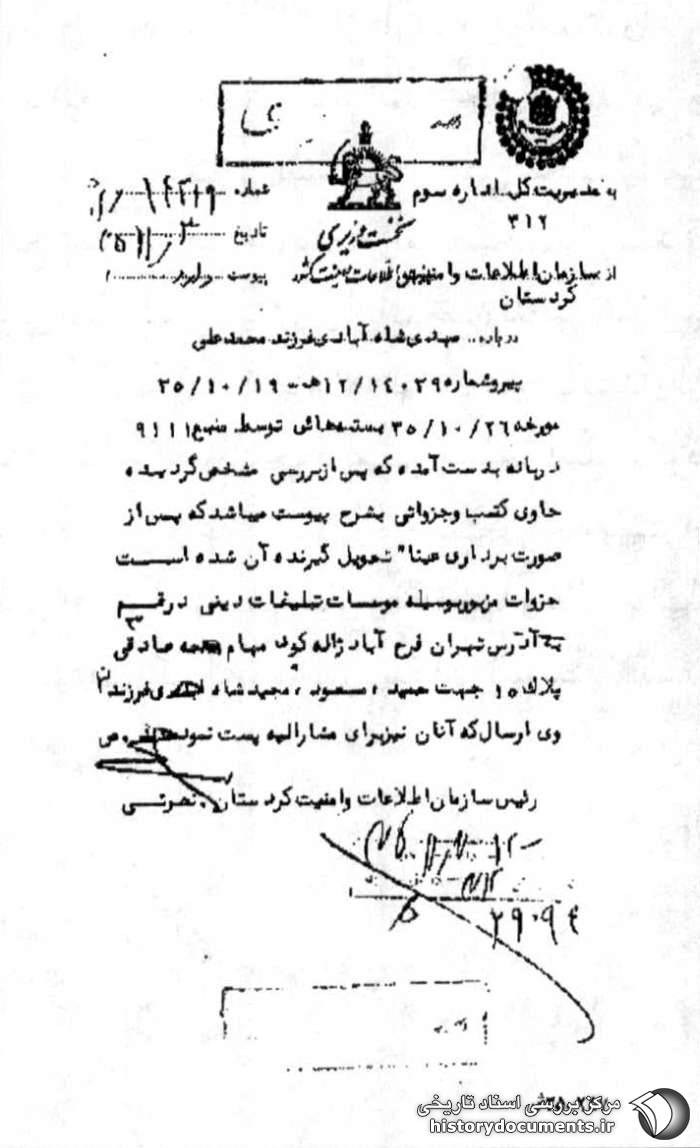 به مدیریت کل اداره سوم
۳۱۲
شماره
نخست وزیری
تاریخ
از سازمان اطلاعات و امنیت کشور
پیوست دارد
کردستان
درباره.. مهدی شاه آبادی فرزند محمدعلی
پیرو شماره ۱۲/۱۴۰۲۹هـ - ۳۵/۱۰/۱۹
مورخه ۳۵/۱۰/۲۶ بسته‌هائی توسط منبع ۹۱۱۱
دربانه بدست آمده که پس از بررسی مشخص گردیده
حاوی کتب و جزواتی بشرح پیوست میباشد که پس از
صورت برداری عینا" تحویل گیرنده آن شده است
جزوات مزبور بوسیله موسسات تبلیغات دینی در قم
به آدرس تهران فرح آباد ژاله کوی مهام صادقی
پلاک ۱۵ جهت حمید ، مسعود ، مجید شاه آبادی فرزندان
وی ارسال که آنان نیز برای مشارالیه پست نموده‌اند ص
رئیس سازمان اطلاعات و امنیت کردستان . نصرتی
۲۹۰۹۴
مرکز بررسی اسناد تاریخی
historydocuments.ir